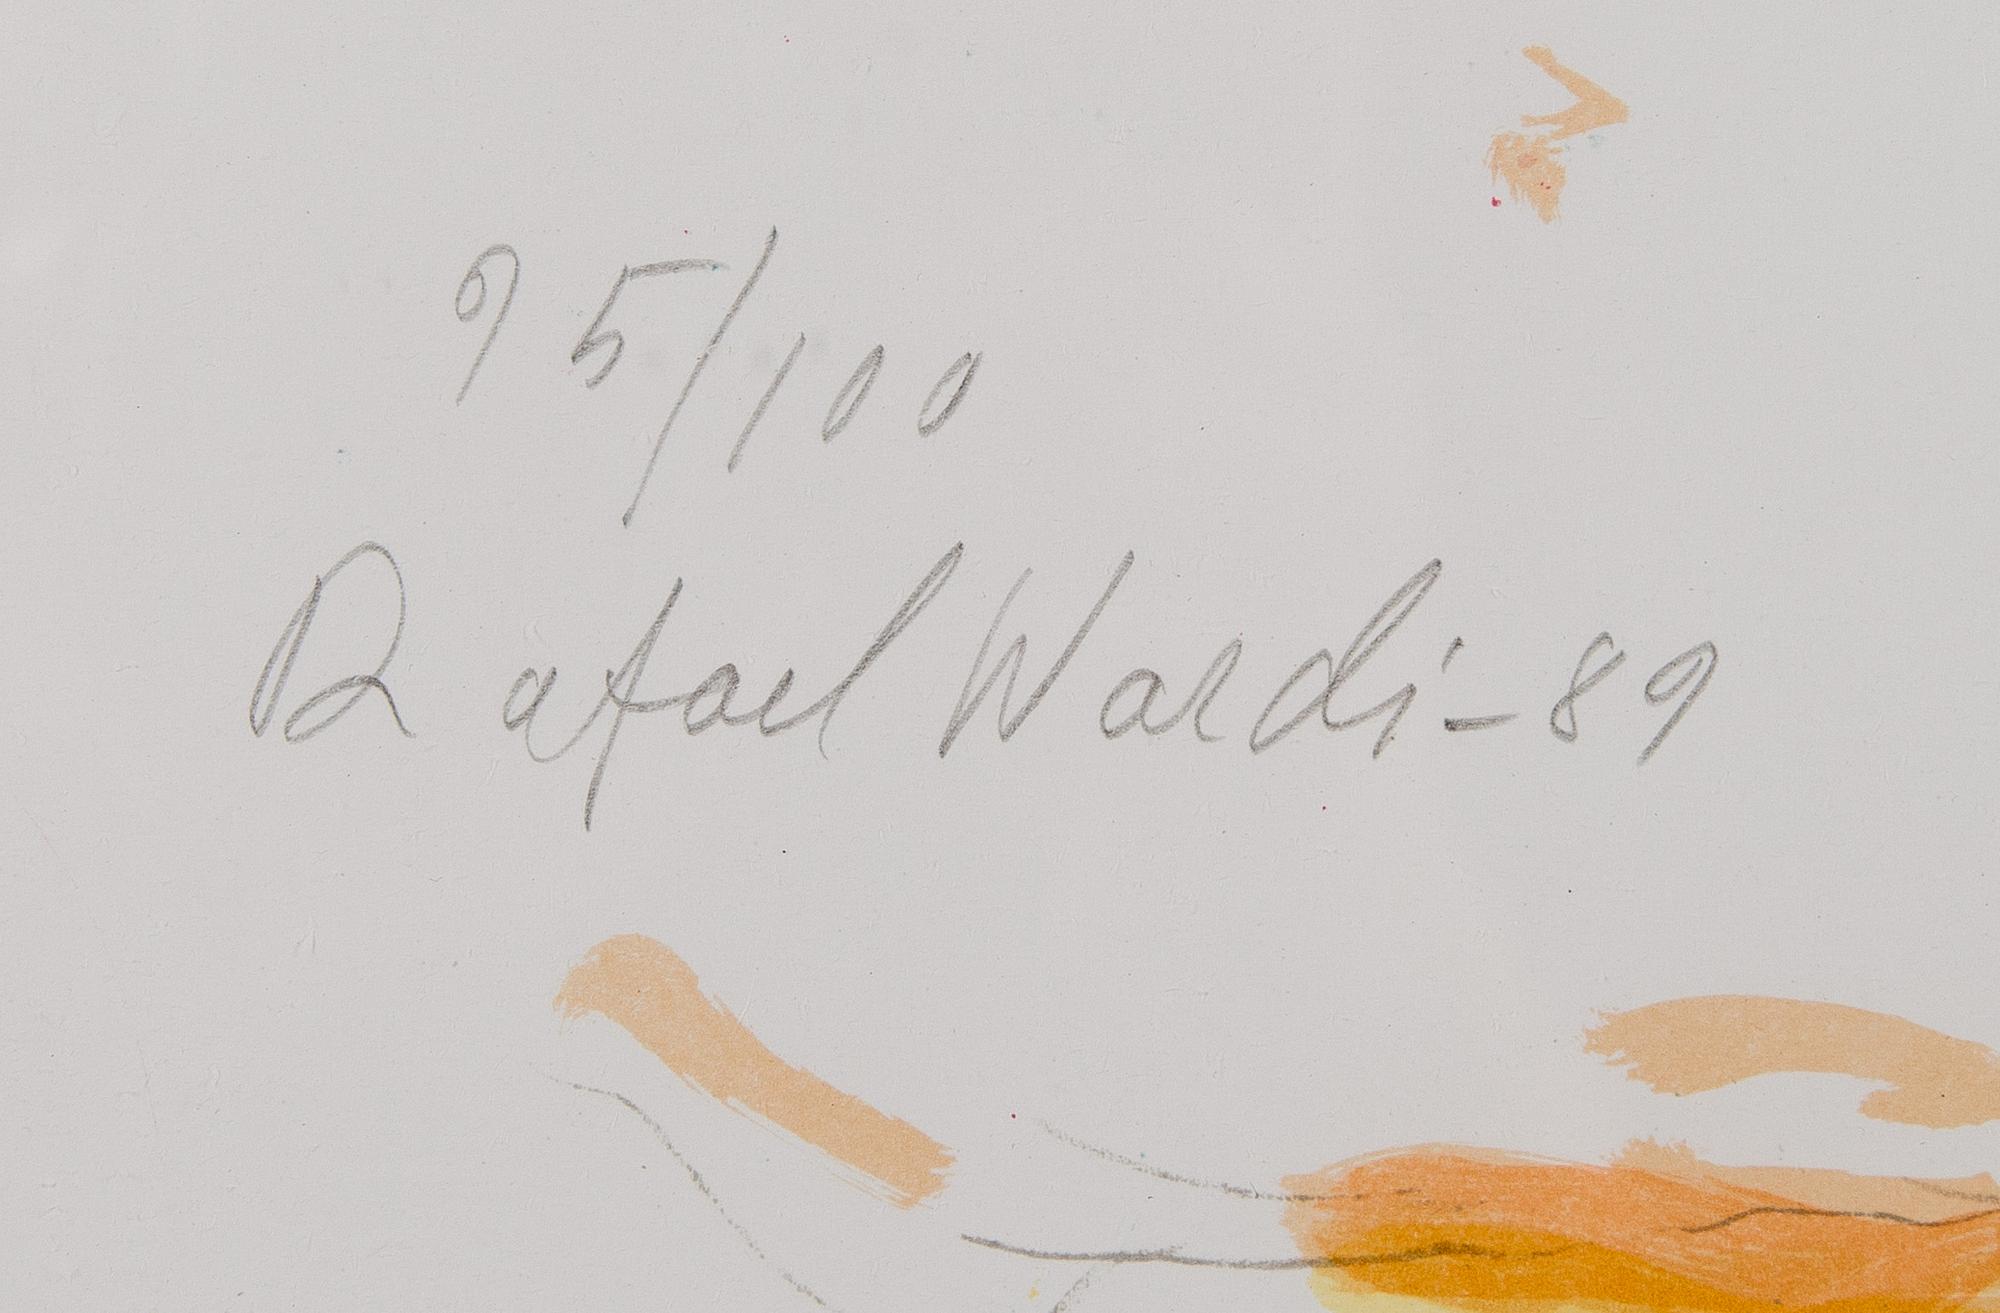 95/100
Rafael Wardi-89